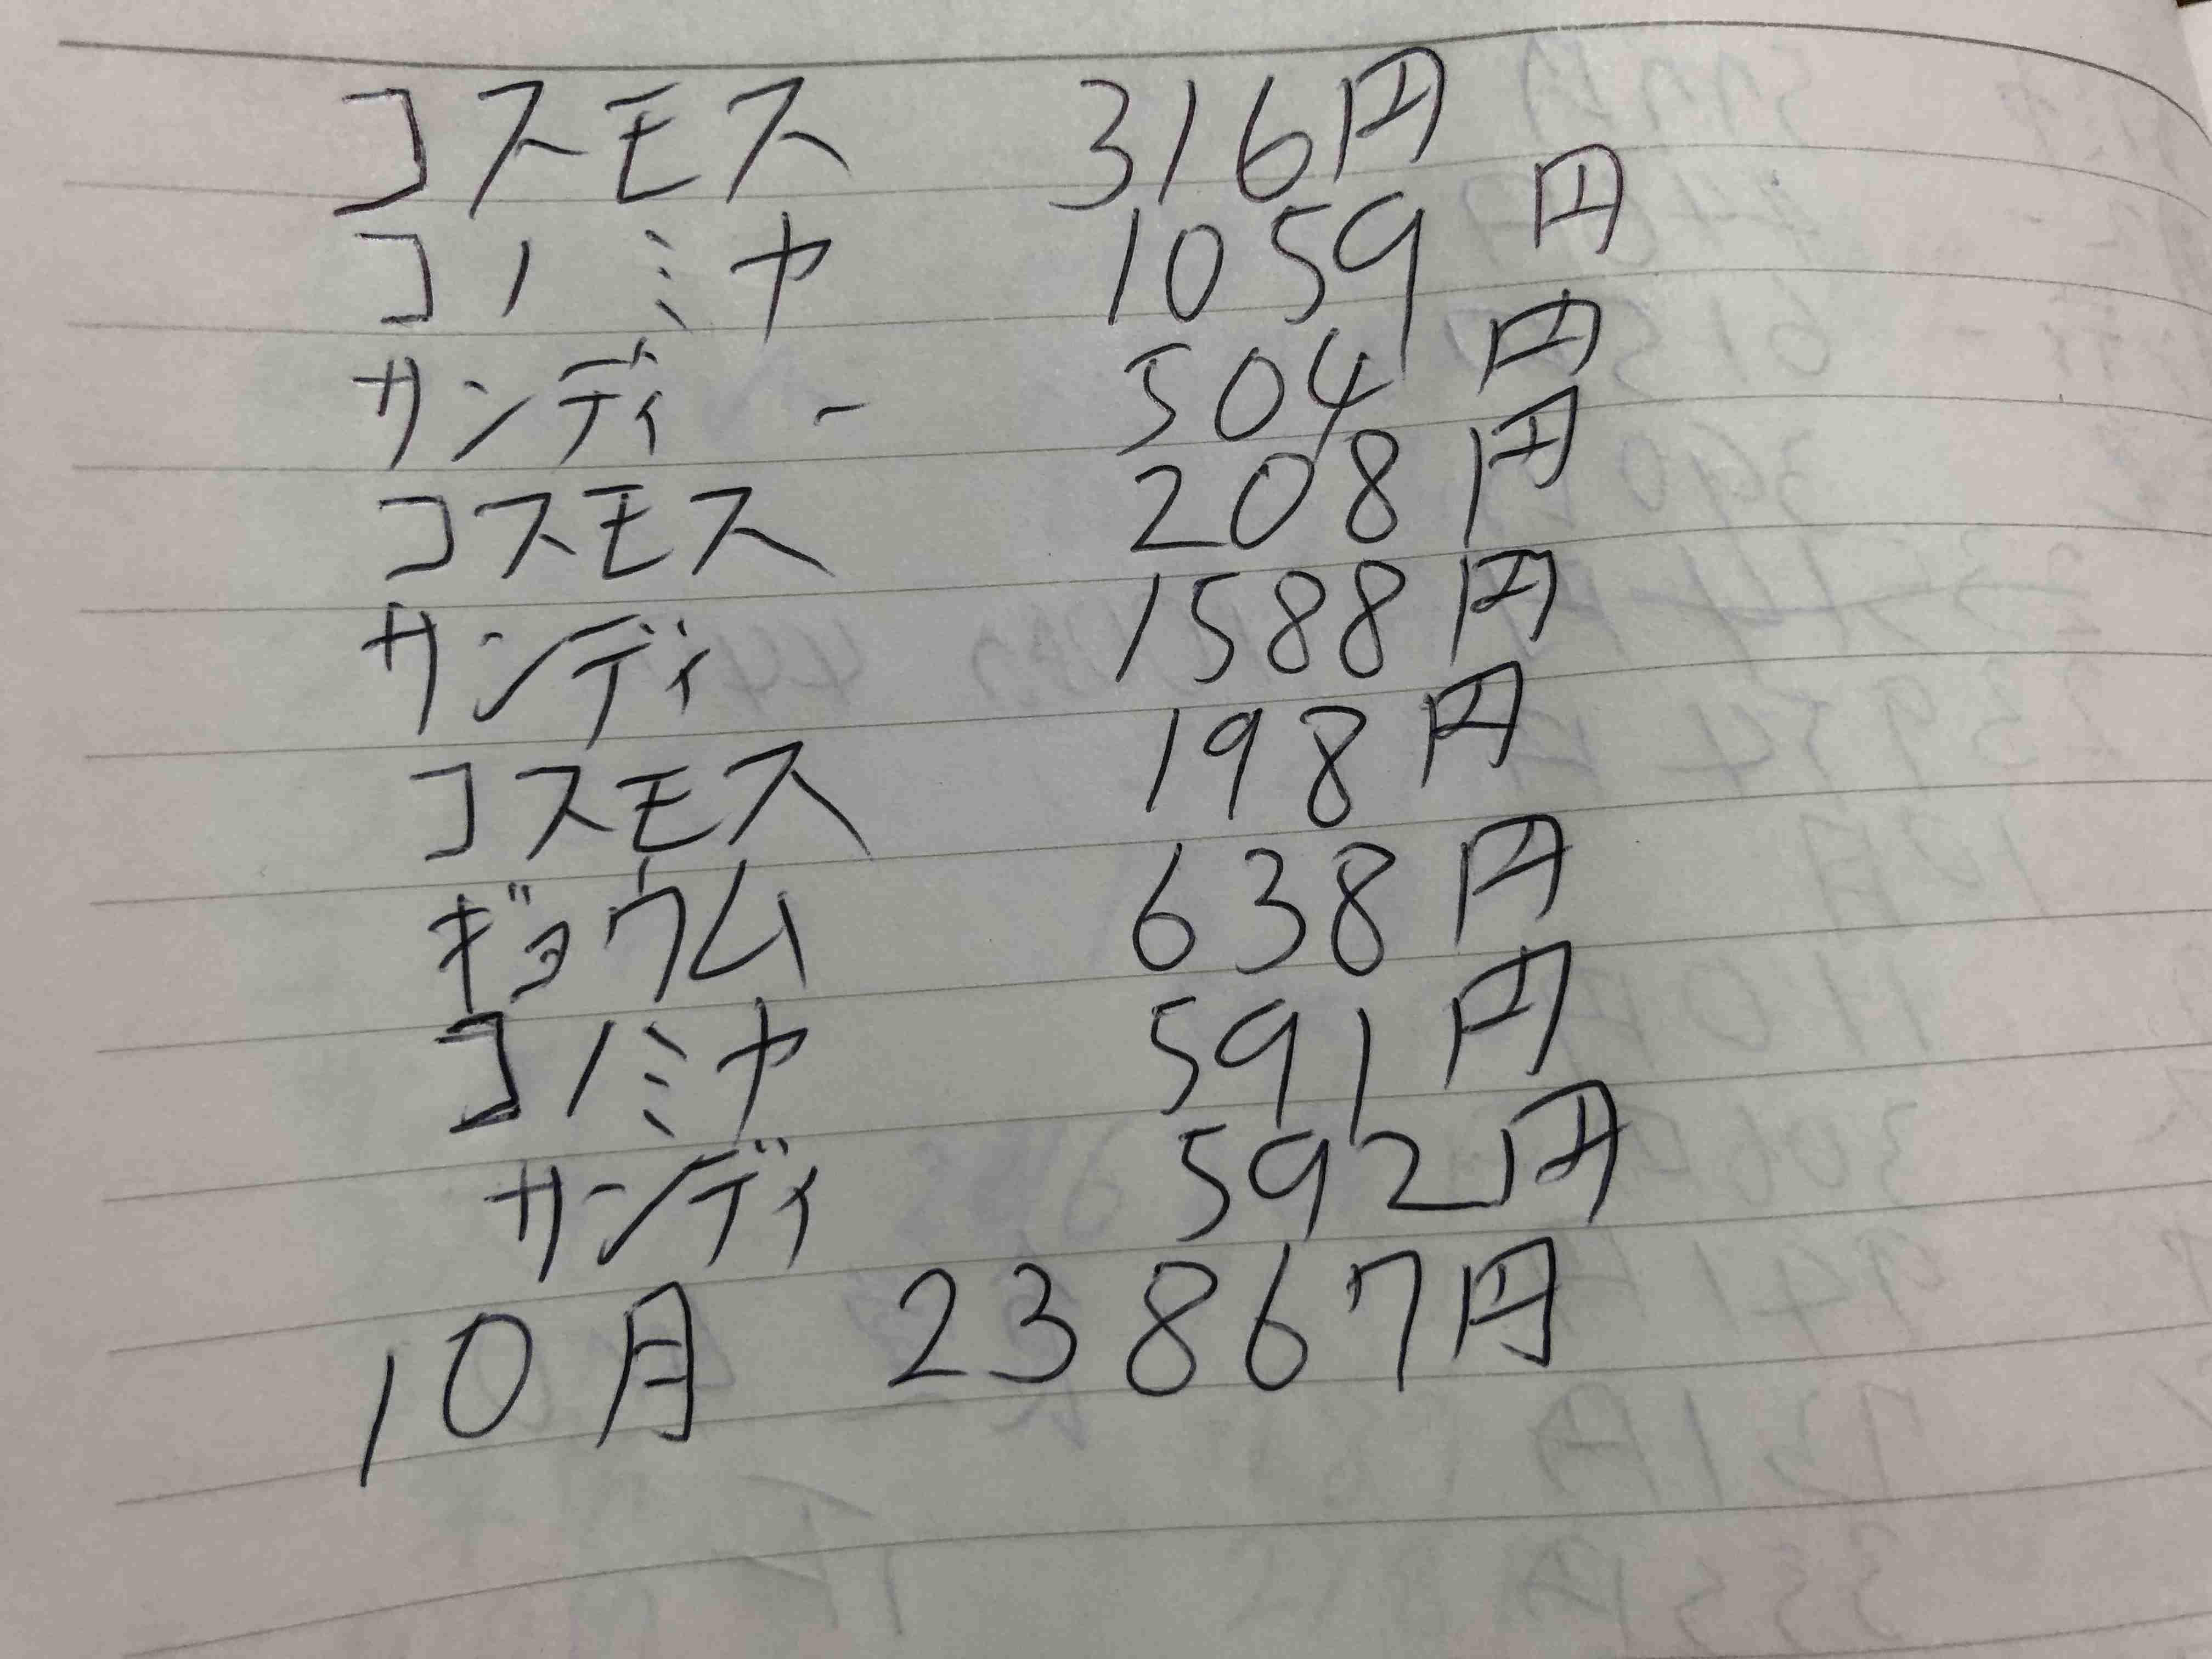 コスモス 316円
コノミヤ 1059円
サンディー 504円
コスモス 208円
サンディ 1588円
コスモス 198円
ギョウム 638円
コノミヤ 591円
サンディ 592円
10月 23867円